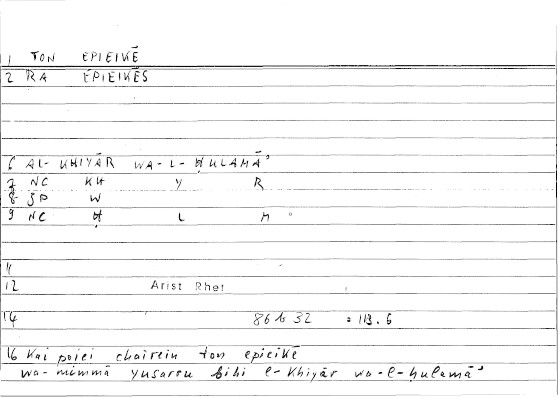 1 TON EPIEIKĒ
2 RA EPIEIKĒS
6 AL- KHIYĀR WA-L-ḤULAMĀʾ
7 NC KH Y R
8 3P W
9 NC Ḥ L M
11
12 Arist Rhet
14 86b32 =113.6
16 Kai poiei chairein ton epieikē
wa-mimmā yusarru bihi l-khiyār wa-l-ḥulamāʾ